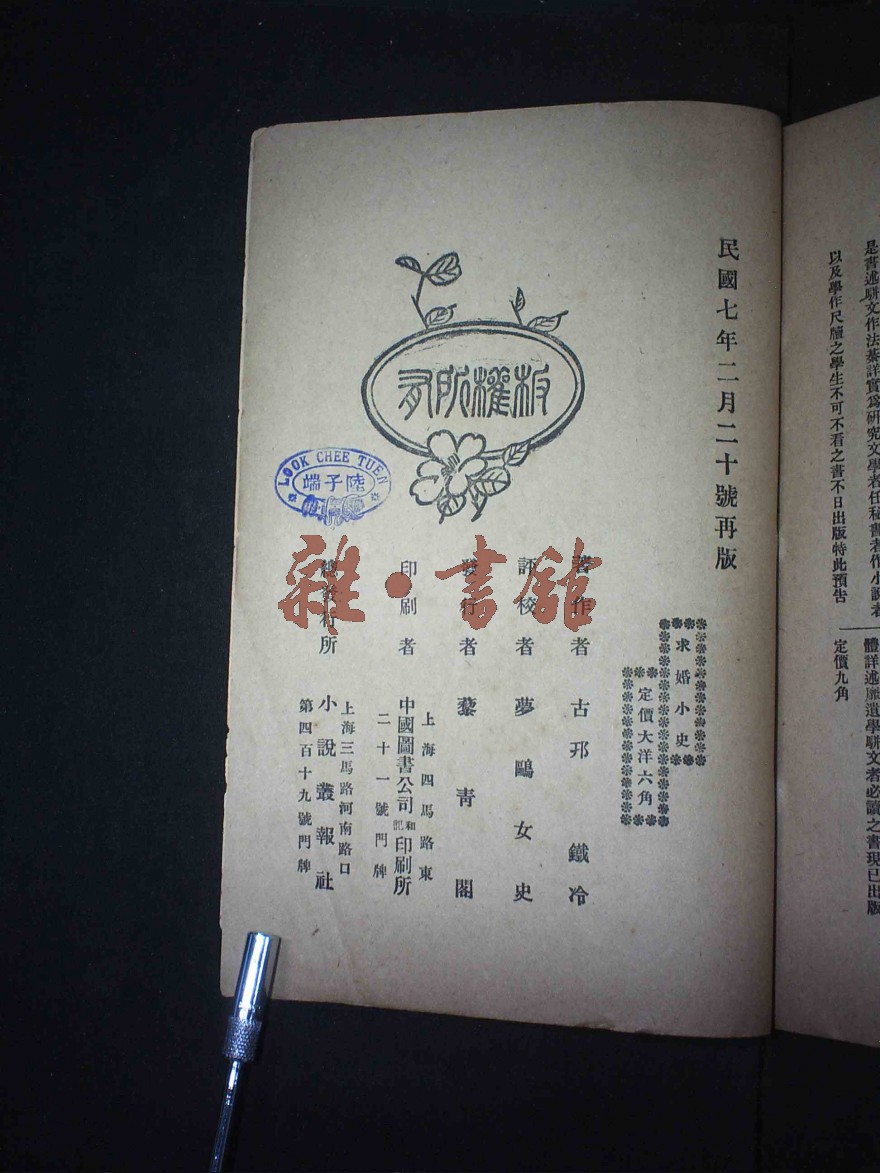 是書述駢文作法綦詳實爲研究文學者任秘書者作小說者
以及學作尺牘之學生不可不看之書不日出版特此預告
體詳述靡遺學駢文者必讀之書現已出版
定價九角
民國七年二月二十號再版
求婚小史
定價大洋六角
著作者 古邗 鐵冷
評校者 夢鷗女史
發行者 藜青閣
印刷者 上海四馬路東
中國圖書公司和記印刷所
二十一號門牌
總發行所 上海三馬路河南路口
小說叢報社
第四百十九號門牌
板權所有
LOOK CHEE TUEN
陸子端
雜·書館